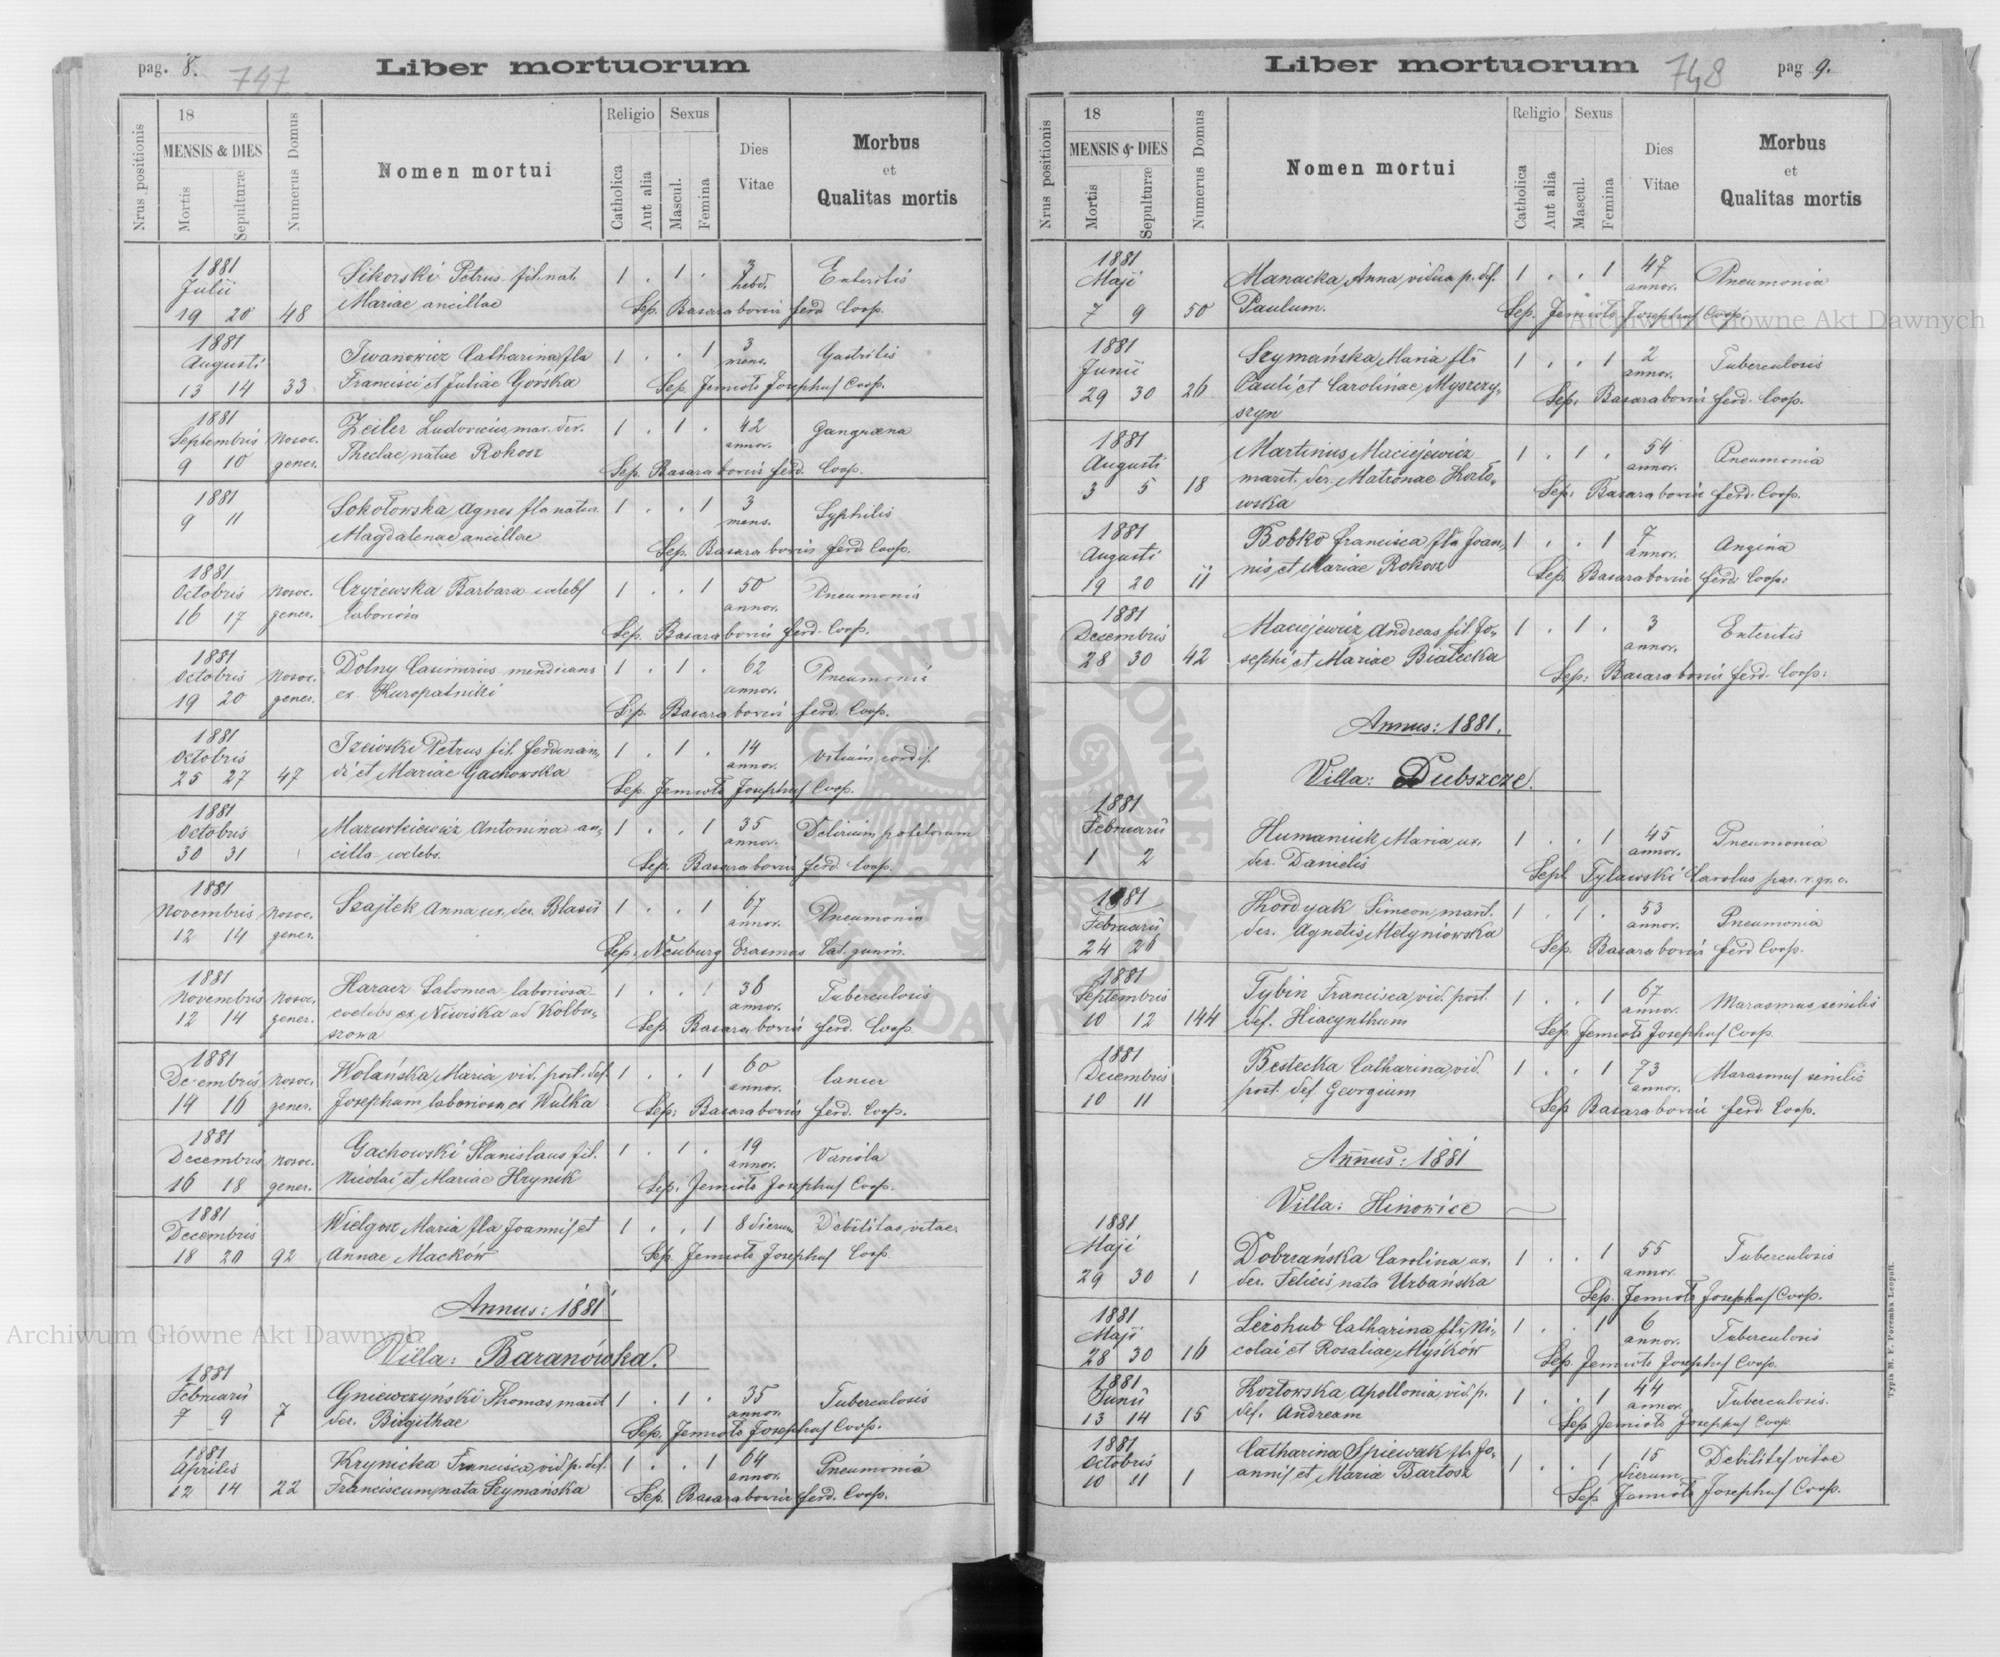 pag. 8. 747 Liber mortuorum
Nrus positionis
18
MENSIS & DIES
Mortis
Sepulturæ
Numerus Domus
Nomen mortui
Religio
Catholica
Aut alia
Sexus
Mascul.
Femina
Dies
Vitae
Morbus
et
Qualitas mortis
1881
Julii
19 20 48
Sikorski Petrus fil. nat. 1 . 1 . 3 hebd. Enteritis
Mariae ancillae
Sep. Basaraborvic ferd. Coop.
1881
Augusti
13 14 33
Iwanowicz Catharina fla 1 . . 1 3 mens. Gastritis
Francisci et Juliae Gorska
Sep. Jemioło Josephus Coop.
1881
Septembris Nosoc.
9 10 gener.
Zeiler Ludovicus, mar. der. 1 . 1 . 42 annor. Gangræna
Theclae natae Rokosz
Sep. Basaraborvic ferd. Coop.
1881
9 11
Sokołowska Agnes fla natur. 1 . . 1 3 mens. Syphilis
Magdalenae ancillae
Sep. Basaraborvic ferd. Coop.
1881
Octobris Nosoc.
16 17 gener.
Czyżewska Barbara coelebs 1 . . 1 50 annor. Pneumonia
laboriosa
Sep. Basaraborvic ferd. Coop.
1881
Octobris Nosoc.
19 20 gener.
Dolny Casimirus mendicans 1 . 1 . 62 annor. Pneumonia
ex Kuropatniki
Sep. Basaraborvic ferd. Coop.
1881
Octobris
25 27 47
Petrus fil. ferdinan- 1 . 1 . 14 annor. vitium cordis.
di et Mariae Gachowska
Sep. Jemioło Josephus Coop.
1881
Octobris
30 31
Mazurkiewicz Antonina an- 1 . . 1 35 annor. Delirium potatorum
cilla coelebs.
Sep. Basaraborvic ferd. Coop.
1881
Novembris Nosoc.
12 14 gener.
Szajlek Anna ux. der. Blasii 1 . . 1 67 annor. Pneumonia
Sep. Neuburg Erasmus Cat. gymn.
1881
Novembris Nosoc.
12 14 gener.
Haracz Salomea laboriosa 1 . . 1 36 annor. Tuberculosis
coelebs ex Niwiska ad Kolbu-
szowa
Sep. Basaraborvic ferd. Coop.
1881
Decembris Nosoc.
14 16 gener.
Wolańska Maria, vid. post. def. 1 . . 1 60 annor. Cancer
Josephum, laboriosa ex Wulka
Sep: Basaraborvic ferd. Coop.
1881
Decembris Nosoc.
16 18 gener.
Gachowski Stanislaus fil. 1 . 1 . 19 annor. Variola
Nicolai et Mariae Hrynik
Sep. Jemioło Josephus Coop.
1881
Decembris
18 20 92
Wielgosz Maria fla Joannis et 1 . . 1 8 dierum Debilitas vitae.
Annae Macków
Sep. Jemioło Josephus Coop.
Annus: 1881
Villa: Baranówka.
1881
Februarii
7 9 7
Gniewczyński Thomas marit 1 . 1 . 35 annor. Tuberculosis
der. Birgithae
Sep. Jemioło Josephus Coop.
1881
Aprilis
12 14 22
Krynicka Francisca, vid. p. def. 1 . . 1 64 annor. Pneumonia
Franciscum, nata Szymańska
Sep. Basaraborvic ferd. Coop.
Liber mortuorum 748 pag 9.
Nrus positionis
18
MENSIS & DIES
Mortis
Sepulturæ
Numerus Domus
Nomen mortui
Religio
Catholica
Aut alia
Sexus
Mascul.
Femina
Dies
Vitae
Morbus
et
Qualitas mortis
1881
Maji
7 9 50
Manacka Anna vidua p. def. 1 . . 1 47 annor. Pneumonia
Paulum.
Sep. Jemioło Josephus Coop.
1881
Junii
29 30 26
Szymańska Maria fla 1 . . 1 2 annor. Tuberculosis
Pauli et Carolinae Myszczy-
szyn
Sep. Basaraborvic ferd. Coop.
1881
Augusti
3 5 18
Martinus Maciejewicz 1 . 1 . 54 annor. Pneumonia
marit. der. Matronae Kozło-
wska
Sep: Basaraborvic ferd. Coop.
1881
Augusti
19 20 11
Bobko Francisca fla Joan- 1 . . 1 7 annor. Angina
nis et Mariae Rokosz
Sep. Basaraborvic ferd. Coop.
1881
Decembris
28 30 42
Maciejewicz Andreas fil. Jo- 1 . 1 . 3 annor. Enteritis
sephi et Mariae Białecka
Sep: Basaraborvic ferd. Coop:
Annus: 1881.
Villa: Dubszcze.
1881
Februarii
1 2
Humaniuk Maria ux. 1 . . 1 45 annor. Pneumonia
der. Danielis
Sepl. Tylawski Carolus par. r. gr. c.
1881
Februarii
24 26
Kordyak Simeon, marit. 1 . 1 . 53 annor. Pneumonia
der. Agnetis Metyniowska
Sep. Basaraborvic ferd Coop.
1881
Septembris
10 12 144
Tybin Francisca, vid. post. 1 . . 1 67 annor. Marasmus senilis
def. Hiacynthum
Sep. Jemioło Josephus Coop.
1881
Decembris
10 11
Bestecka Catharina, vid. 1 . . 1 73 annor. Marasmus senilis
post. def. Georgium
Sep Basaraborvic ferd Coop.
Annus: 1881
Villa: Hinowice
1881
Maji
29 30 1
Dobrzańska Carolina ux. 1 . . 1 55 annor. Tuberculosis
der. Felicis nata Urbańska
Sep. Jemioło Josephus Coop.
1881
Maji
28 30 16
Catharina fla Ni- 1 . . 1 6 annor. Tuberculosis
colai et Rosaliae Myśków
Sep. Jemioło Josephus Coop.
1881
Junii
13 14 15
Kozłowska Apollonia, vid. p. 1 . . 1 44 annor. Tuberculosis.
def. Andream
Sep Jemioło Josephus Coop
1881
Octobris
10 11 1
Catharina Spiewak fla Jo- 1 . . 1 15 dierum Debilitas vitae
annis et Maria Bartosz
Sep. Jemioło Josephus Coop.
Typis M. F. Poremba Leopoli.
Archiwum Główne Akt Dawnych
Archiwum Główne Akt Dawnych
ARCHIWUM GŁÓWNE AKT DAWNYCH